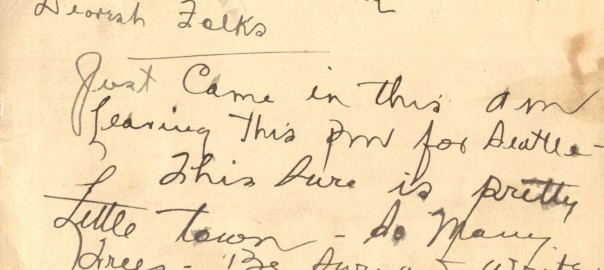 Dearest Folks
Just Came in this am
Leaving This pm for Seattle -
This Sure is pretty
Little town - So Many
Trees - Be Sure & write